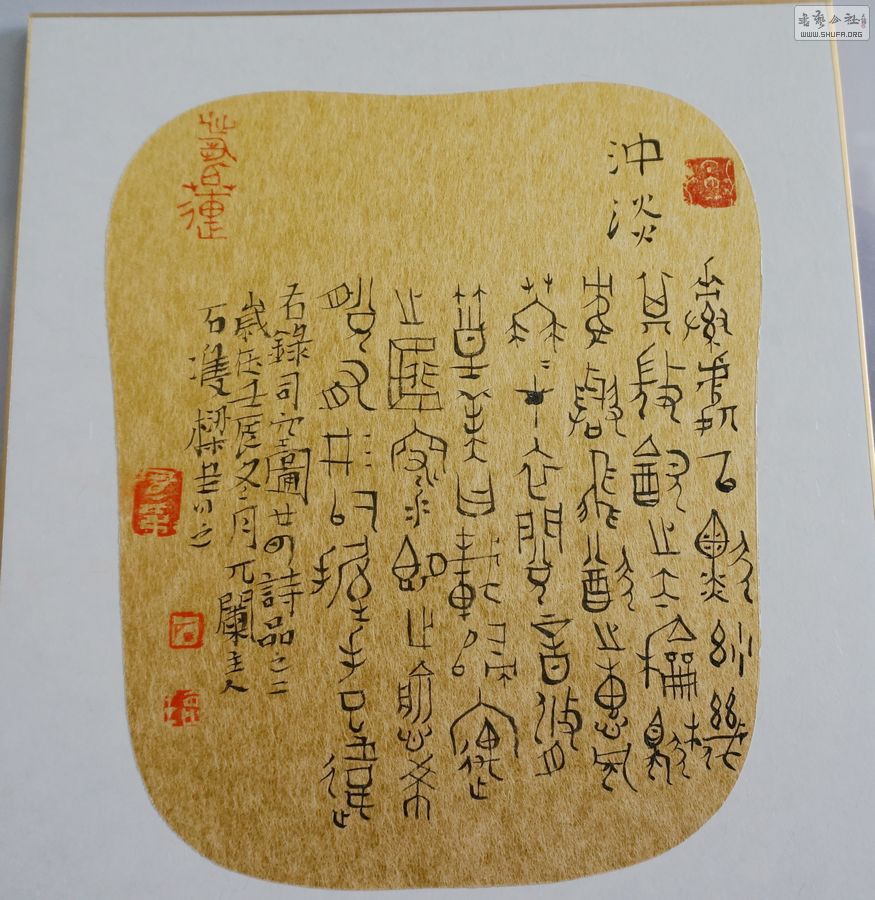 沖淡
素處以默妙機
其微飲之太和獨
鶴與飛猶之惠風
荏苒在衣閱音修
篁美曰載歸遇
之匪深即之愈希
脫有形似握手已違
右錄司空圖廿四詩品之二
歲在壬辰冬月兀闌主人
石隻樑並刊之
WWW.SHUFA.ORG